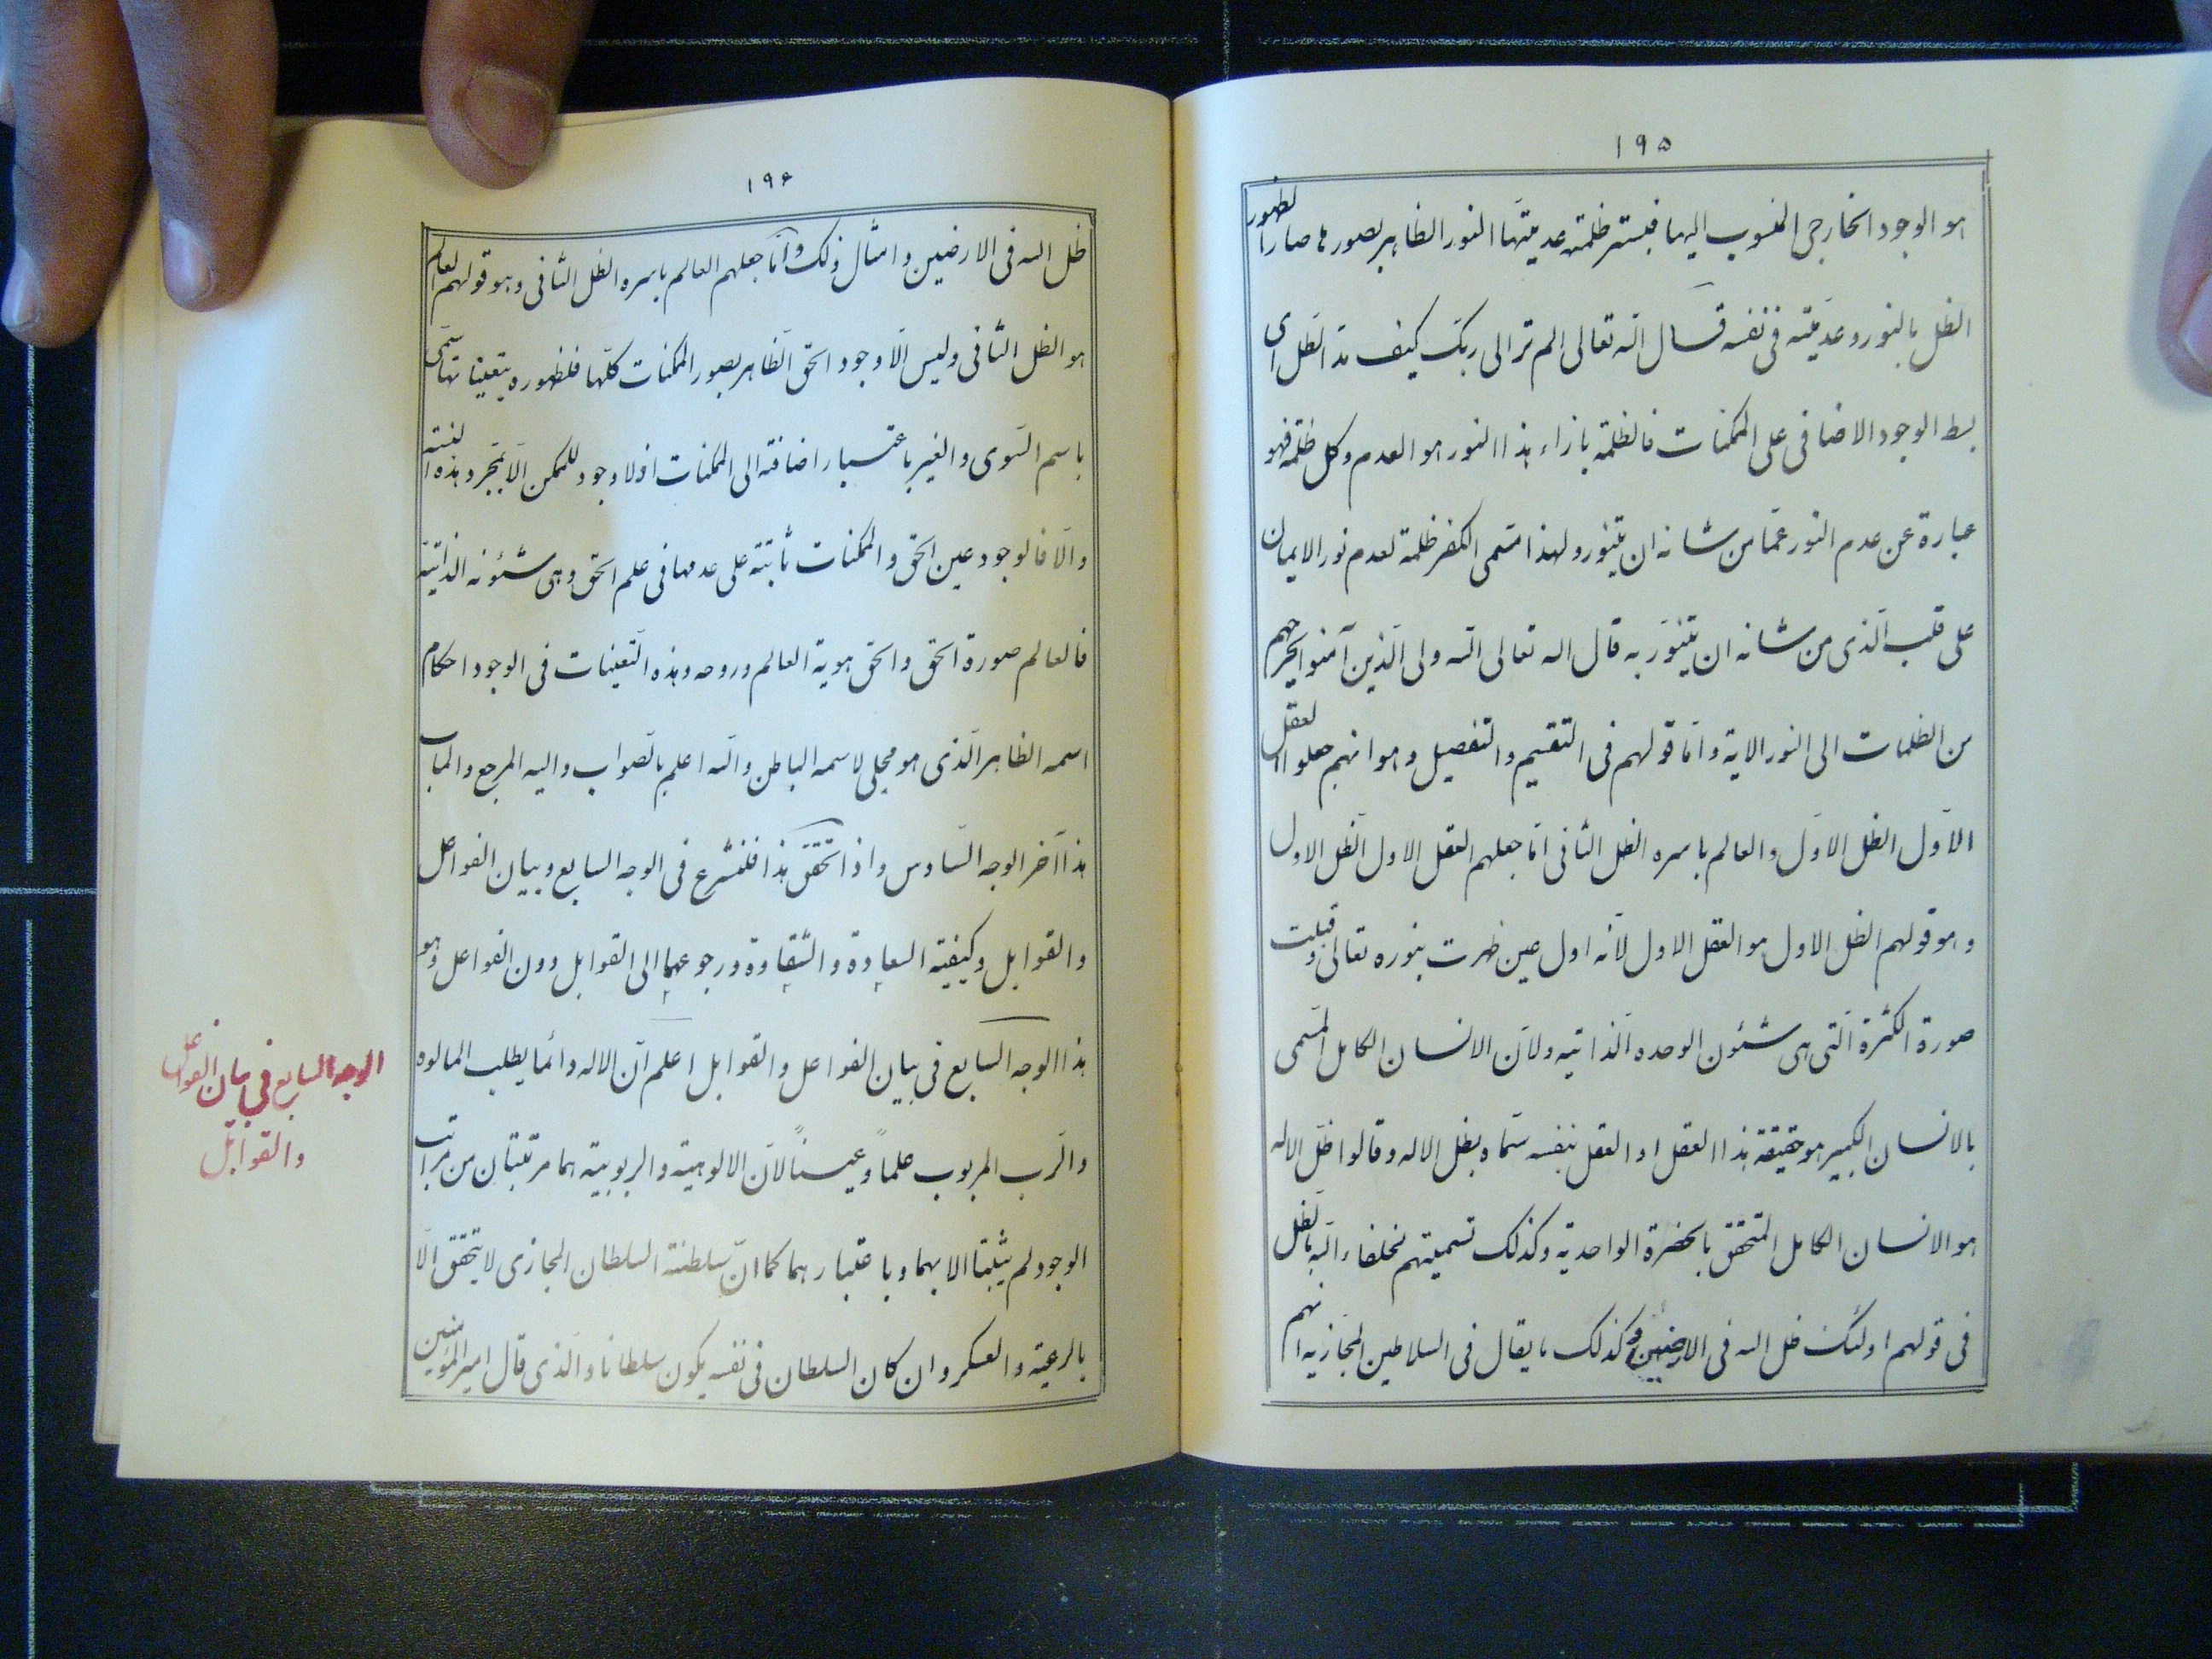 ١٩٥
هو الوجود الخارجی المنسوب الیها فیستر ظلمة عدمیتها النور الظاهر بصورها صار الظهور
الظل بالنور وعدمیته فی نفسه قال الله تعالی الم تر الی ربک کیف مد الظل ای
بسط الوجود الاضافی علی الممکنات فالظلمة بازاء هذا النور هو العدم وکل ظلمة فهو
عبارة عن عدم النور عمّا من شانه ان یتنور ولهذا سمی الکفر ظلمة لعدم نور الایمان
علی قلب الذی من شانه ان یتنوّر به قال الله تعالی الله ولی الذین آمنوا یخرجهم
من الظلمات الی النور الایة وامّا قولهم فی التقسیم والتفصیل وهو انهم جعلوا العقل
الاوّل الظل الاوّل والعالم باسره الظل الثانی امّا جعلهم العقل الاول الظل الاول
وهو قولهم الظل الاول هو العقل الاول لانّه اول عین ظهرت بنوره تعالی وقبلت
صورة الکثرة الّتی هی شئون الوحده الذاتیه ولانّ الانسان الکامل المسمی
بالانسان الکبیر هو حقیقة هذا العقل او العقل بنفسه سمّاه بظل الاله وقالوا ظلّ الاله
هو الانسان الکامل المتحقق بالحضرة الواحدیة وکذلک تسمیتهم لخلفاء الله بالظل
فی قولهم اولئک ظل الله فی الارضین وکذلک ما یقال فی السلاطین المجازیه انهم
١٩۶
ظل الله فی الارضین وامثال ذلک وامّا جعلهم العالم باسره الظل الثانی وهو قولهم العالم
هو الظل الثانی ولیس الّا وجود الحق الظاهر بصور الممکنات کلّها فلظهوره بتعیناتها سمّی
باسم السّوی والغیر باعتبار اضافته الی الممکنات اذ لا وجود للممکن الّا بمجرد هذه النسبة
والّا فالوجود عین الحق والممکنات ثابتة علی عدمها فی علم الحق وهی شئونه الذاتیّة
فالعالم صورة الحق والحق هویة العالم وروحه وهذه التعینات فی الوجود احکام
اسمه الظاهر الّذی هو مجلی لاسمه الباطن والله اعلم بالصواب والیه المرجع والماب
هذا آخر الوجه السّادس واذا تحقق هذا فلنشرع فی الوجه السابع وبیان الفواعل
والقوابل وکیفیة السعادة والشّقاوة ورجوعهما الی القوابل دون الفواعل وهو
هذا الوجه السابع فی بیان الفواعل والقوابل اعلم انّ الاله دائما یطلب المالوه
والرّب المربوب علماً وعیناً لانّ الالوهیة والربوبیة هما مرتبتان من مراتب
الوجود لم یثبتا الا بهما وباعتبارهما کما انّ سلطنة السلطان المجازی لا یتحقق الّا
بالرعیة والعسکر وان کان السلطان فی نفسه یکون سلطانا والذی قال امیر المؤمنین
الوجه السابع فی بیان الفواعل
والقوابل